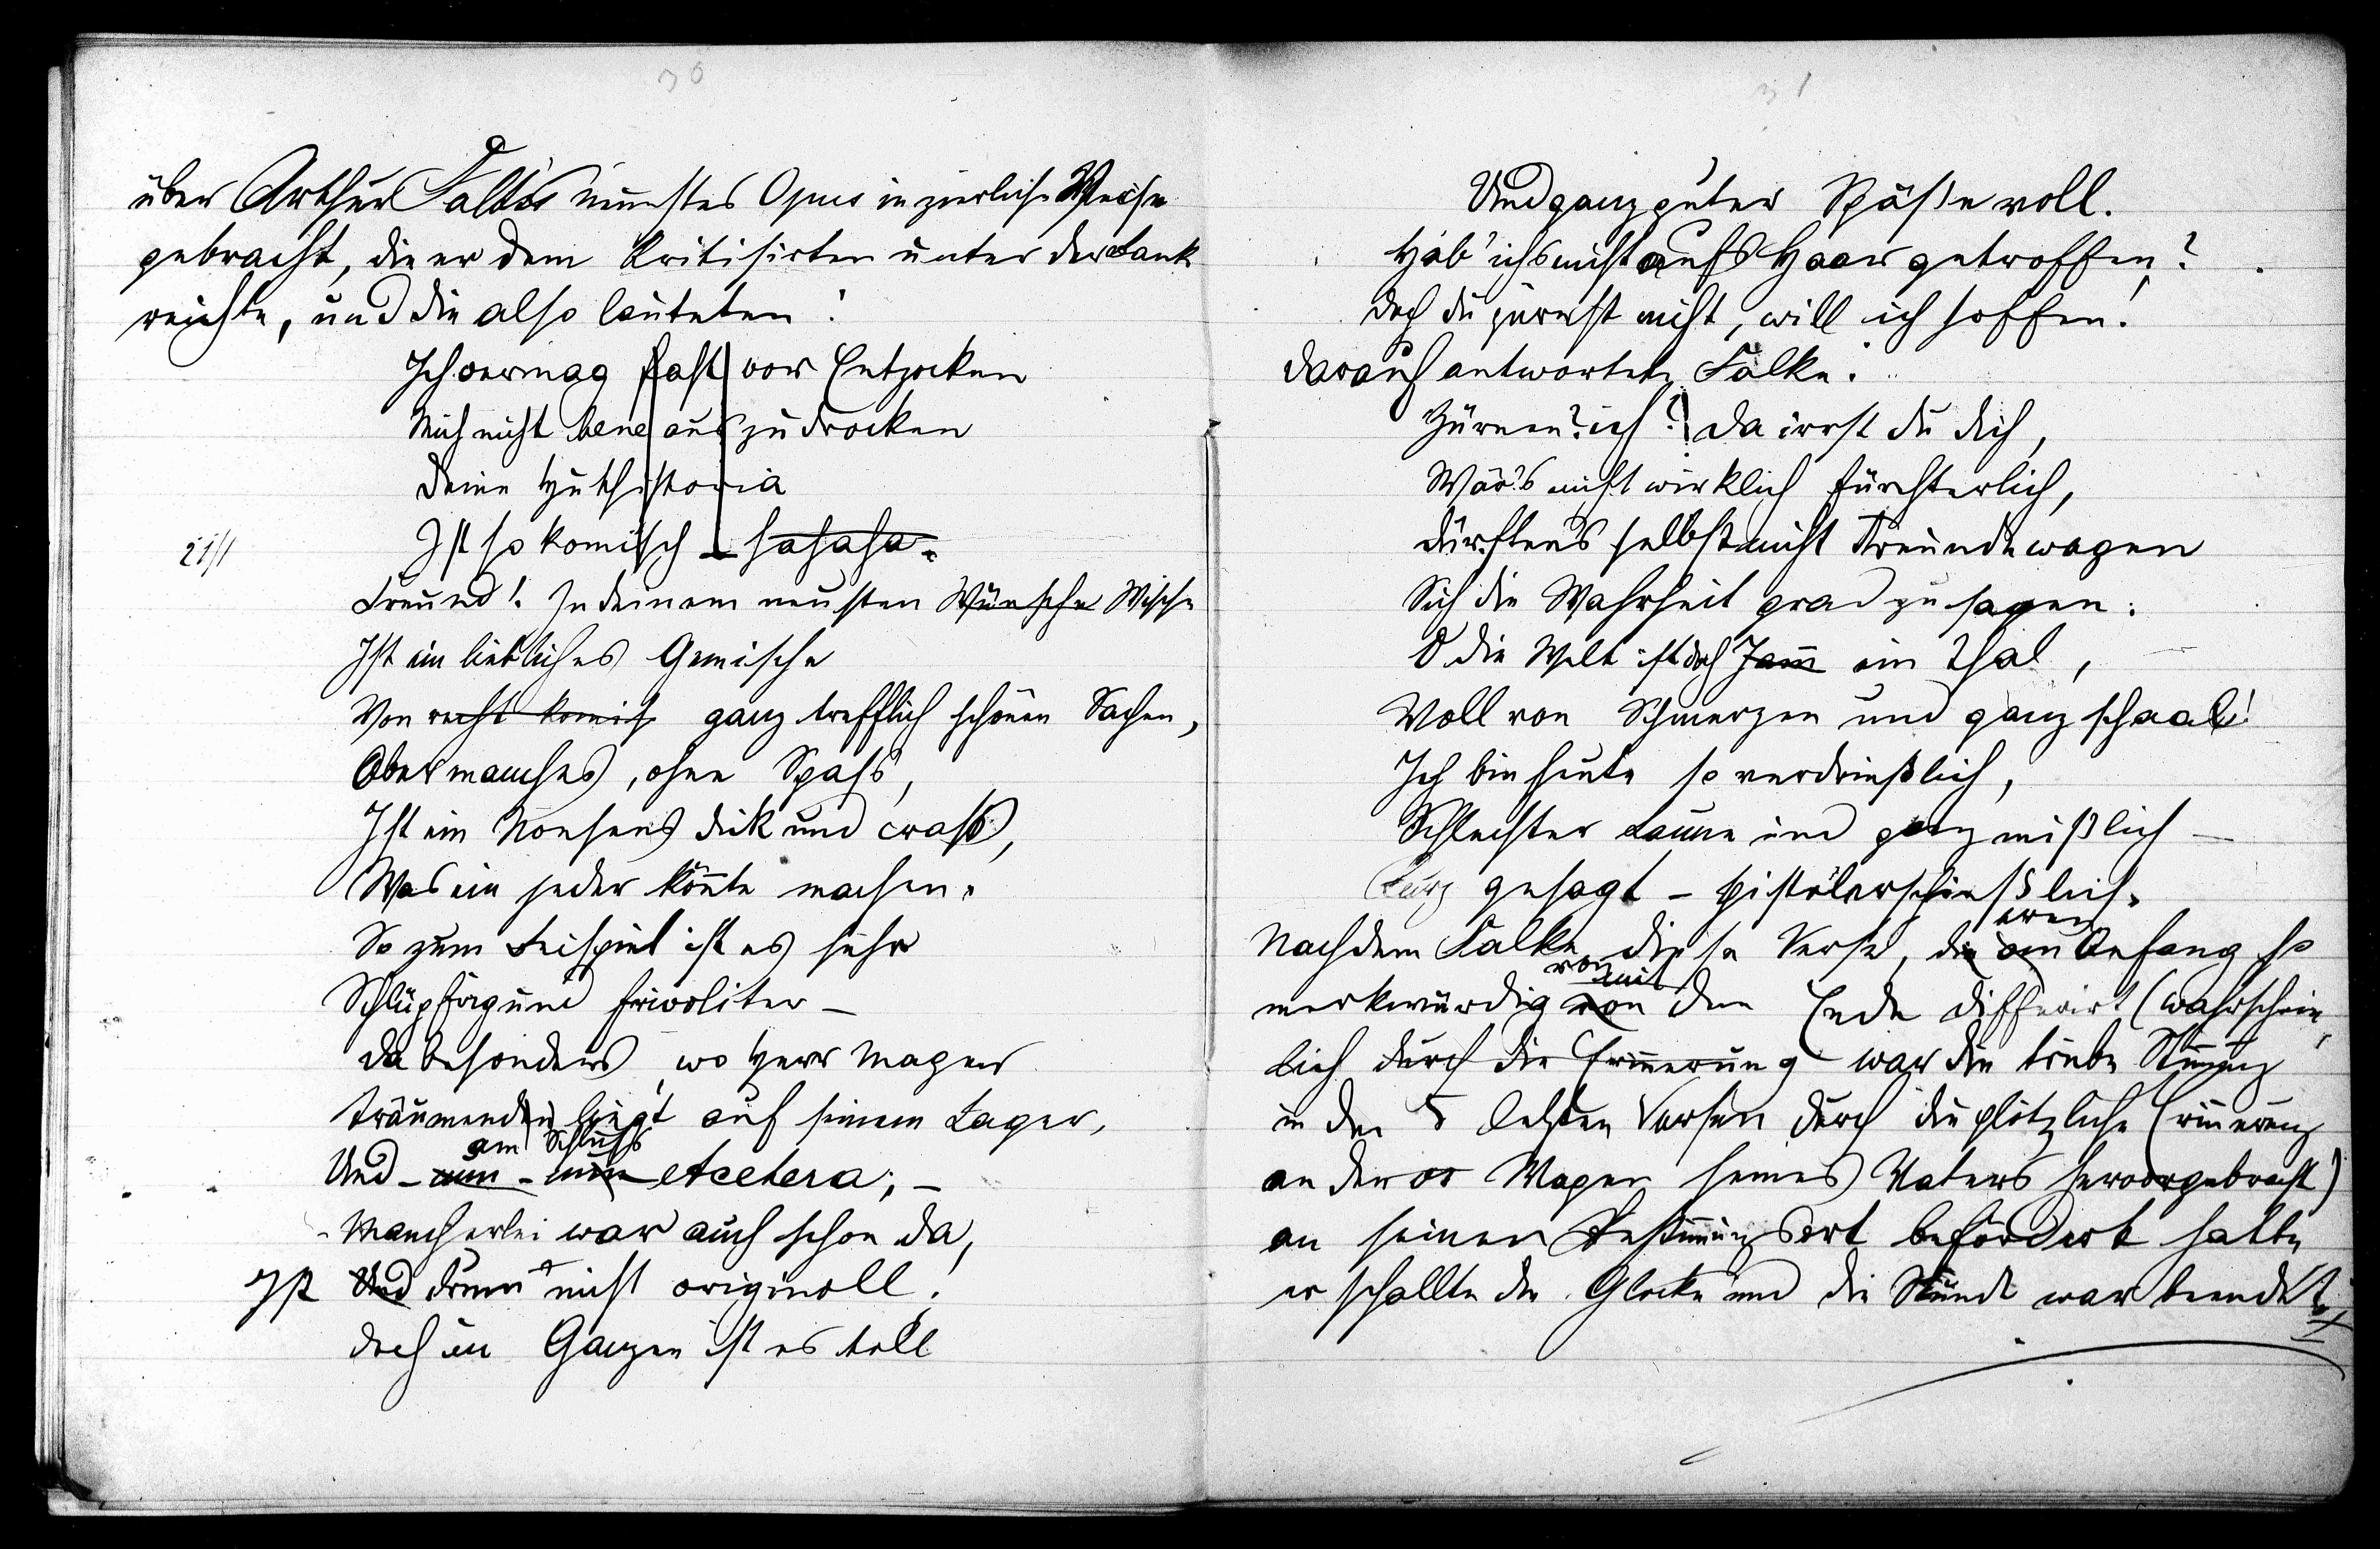 30
über Arthur Falk's neustes Opus in zierliche Verse
gebracht, die er dem Kritisirten unter der Bank
reichte, und die also lauteten:
Ich vermag fast vor Entzocken
Mich nicht bene auszudrocken
Deine Huthistoria
21/1
Ist so komisch – hahaha.
Freund! In deinem neusten Wünsche Wische
Ist ein liebliches Gemische
Von recht komisch ganz trefflich schönen Sachen,
Aber manches, ohne Spaß,
Ist ein Nonsens dick und crass,
Was ein jeder könnte machen.
So zum Beispiel ist es sehr
Schlüpfrig und frivoliter –
Da besonders, wo Herr Mager
träumend liegt auf seinem Lager,
am Schluss
Und – nun – nun etcetera; –
Mancherlei war auch schon da,
Ist Und drum nicht originoll.
Doch im Ganzen ist es toll
31
Und ganz guter Späße voll.
Hab' ichs nicht aufs Haar getroffen?
Doch du zürnst nicht, will ich hoffen!
Darauf antwortete Falke:
Zürnen? ich? Da irrst du dich,
Wär's nicht wirklich fürchterlich,
Dürften's selbst nicht Freunde wagen
Sich die Wahrheit grad zu sagen.
O die Welt ist doch Jam ein Thal,
Voll von Schmerzen und ganz schaal!
Ich bin heute so verdrießlich,
Schlechter Laune und ganz mißlich –
Kurz gesagt – pistolerschießlich.
Nachdem Falke diese Verse, die am Anfang so
von mit
merkwürdig von dem Ende differirt (wahrschein
lich durch die Erinnerung war die trübe Stimmung
in den 5 letzten Versen durch die plötzliche Erinnerung
an den Magen seines Vaters hervorgebracht)
an seinen Bestimmungsort befördert hatte
erschallte die Glocke und die Stunde war beendet.